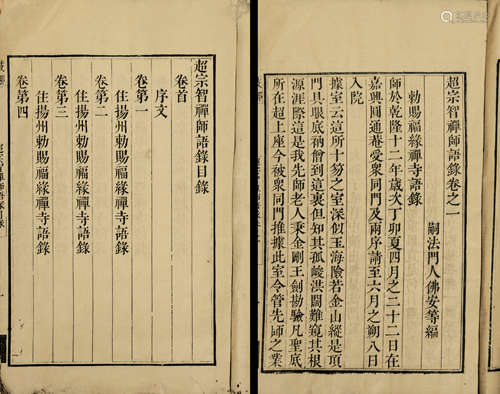 超宗智禪師語錄目錄
卷首
序文
卷第一
住揚州勅賜福緣禪寺語錄
卷第二
住揚州勅賜福緣禪寺語錄
卷第三
住揚州勅賜福緣禪寺語錄
卷第四
超宗智禪師語錄卷之一
嗣法門人佛安等編
勅賜福緣禪寺語錄
師於乾隆十二年歲次丁卯夏四月之二十二日在
嘉興圓通菴受衆同門及兩序請至六月之朔八日
入院
據室云這所十笏之室深似玉海險若金山縱是項
門具眼底衲僧到這裏但知其孤峻洪闊難窺其根
源涯際這是我先師老人秉金剛王劍勘驗凡聖底
所在超上座今被衆同門推據此室令管先師之業